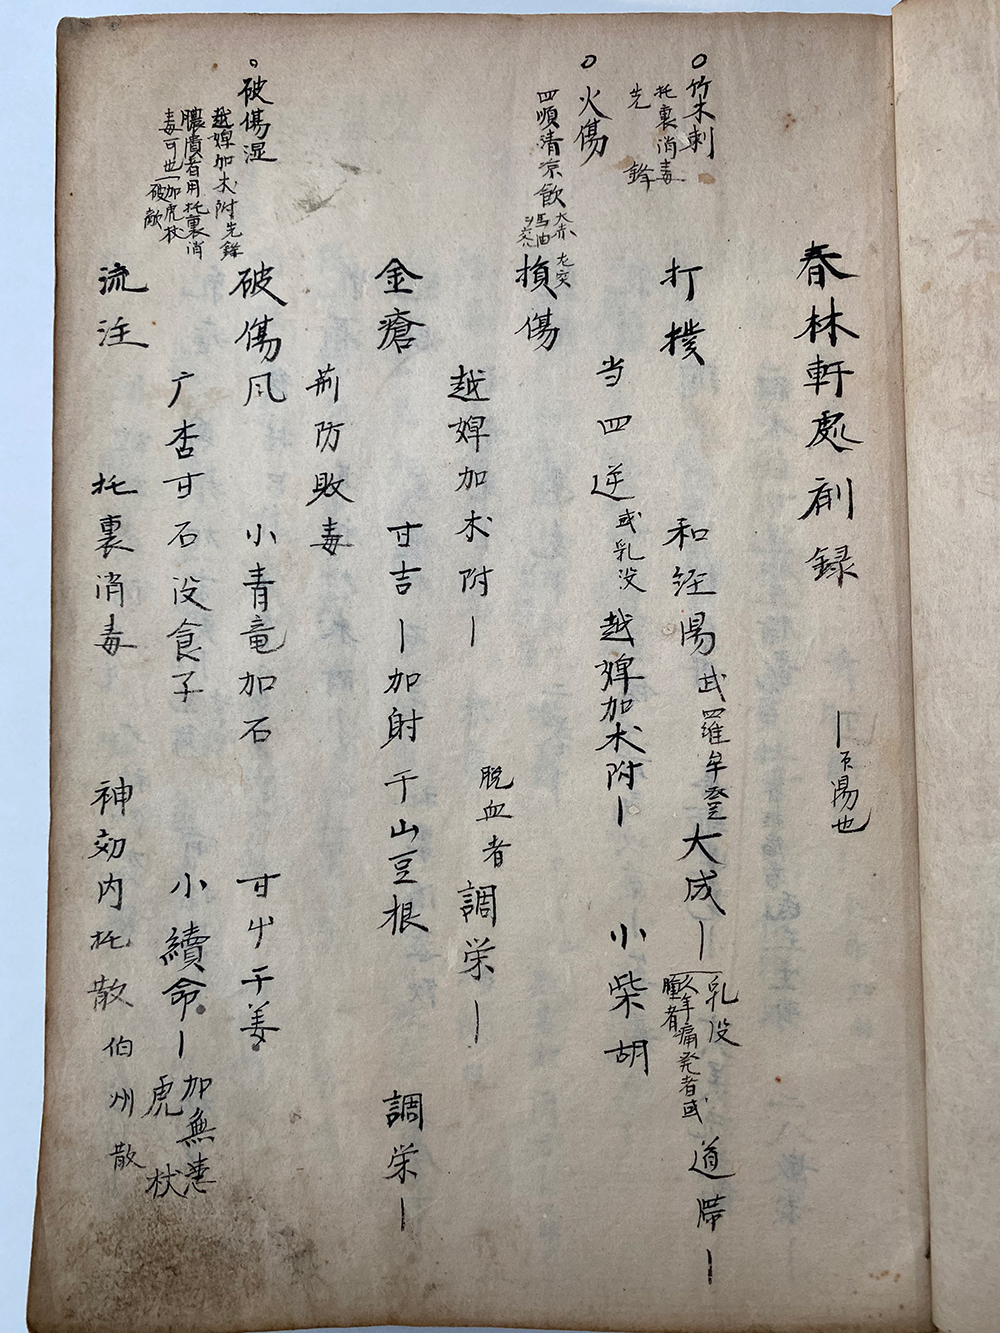 春林軒処剤録
｜ハ湯也
○竹木刺
托裏消毒
先鋒
打撲
和経湯 或羅牟登 大成｜ 乳没
久年痛発者或
腫者
道滞｜
○火傷
四順清涼飲
馬油
当四逆 或乳没 越婢加朮附｜ 小柴胡
損傷
越婢加朮附｜ 脱血者 調栄｜
金瘡
甘吉｜加射干山豆根 調栄｜
荊防敗毒
○破傷湿
越婢加朮附先鋒
膿潰者用托裏消
毒可也｜加虎杖
破敵
破傷風
小青竜加石 甘草干姜
广杏甘石没食子 小續命｜加無患
虎杖
流注
托裏消毒 神効内托散 伯州散